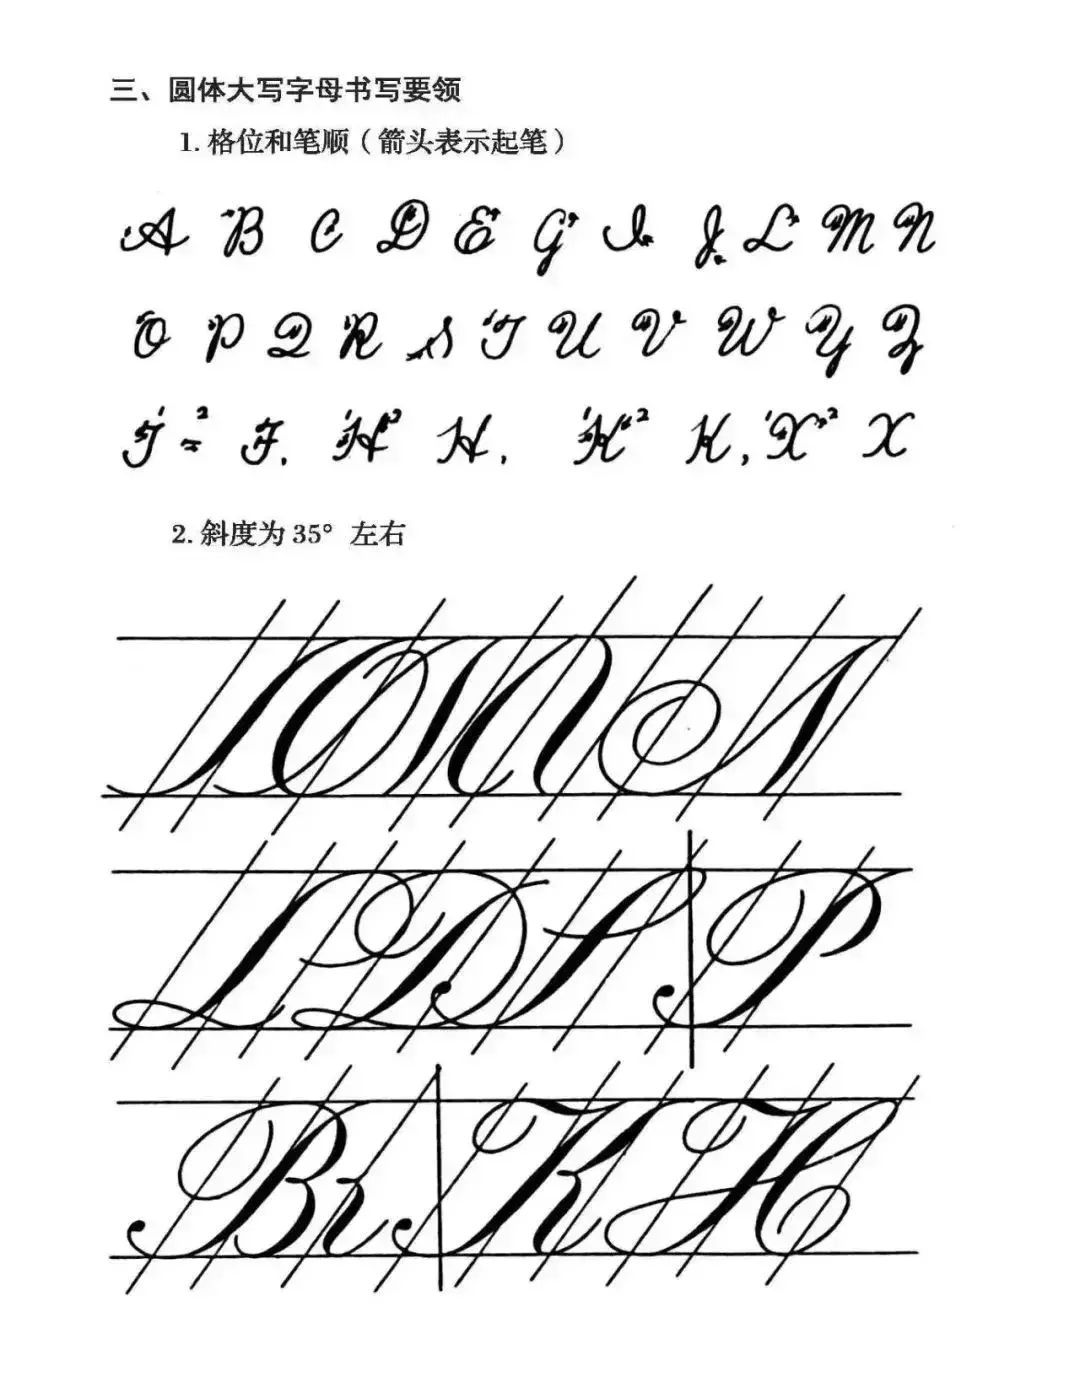 三、圆体大写字母书写要领
1. 格位和笔顺（箭头表示起笔）
A B C D E G I J L M N
O P Q R S T U V W Y Z
1 2 F. 1 H 2 H. 1 K 2 K, 1 X 2 X
2. 斜度为 35° 左右
L D S P
B K H